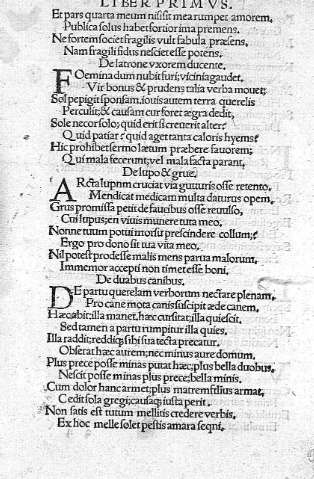 LIBER PRIMVS.
Et pars quarta meum nisi sit mea rumpet amorem,
Publica solus habet fortiora premens.
Ne fortem societ fragilis vult fabula præsens,
Nam fragili fidus nesciet esse potens.
De latrone vxorem ducente.
FOemina dum nubit furi; vicinia gaudet,
Vir bonus & prudens talia verba mouet:
Sol pepigit sponsam, iouis autem terra querelis
Perculit; & causam cur foret ægra dedit,
Sole necor solo; quid erit si creuerit alter?
Quid patiar? quid aget tanta caloris hyems?
Hic prohibet sermo lætum præbere fauorem;
Qui mala fecerunt; vel mala facta parant,
De lupo & grue.
ARcta lupum cruciat via gutturis osse retento.
Mendicat medicam multa daturus opem,
Grus promissa petit de faucibus osse reuulso,
Cui lupus; en viuis munere tuta meo.
Nonne tuum potui morsu prescindere collum?
Ergo pro dono sit tua vita meo.
Nil potest prodesse malis mens parua malorum,
Immemor accepti non timet esse boni.
De duabus canibus.
DE partu querelam verborum nectare plenam,
Pro cane mota canis suscipit æde canem,
Hæc abit; illa manet, hæc cursitat; illa quiescit.
Sed tamen a partu rumpitur illa quies.
Illa reddit; reddiq; sibi sua tecta precatur.
Obserat hæc aurem; nec minus aure domum.
Plus prece posse minas putat hæc; plus bella duobus,
Nescit posse minus plus prece; bella minis.
Cum dolor hanc armet; plus matrem filius armat,
Cedit sola gregi; causaq; iusta perit.
Non satis est tutum mellitis credere verbis.
Ex hoc melle solet pestis amara seqni.